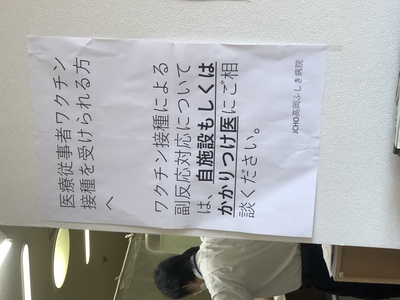 医療従事者ワクチン
接種を受けられる方
へ
ワクチン接種による
副反応対応について
は、自施設もしくは
かかりつけ医にご相
談ください。
JCHO高岡ふしき病院